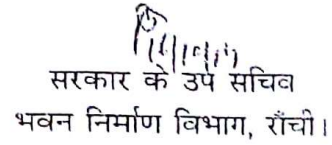 सरकार के उप सचिव
भवन निर्माण विभाग, राँची।